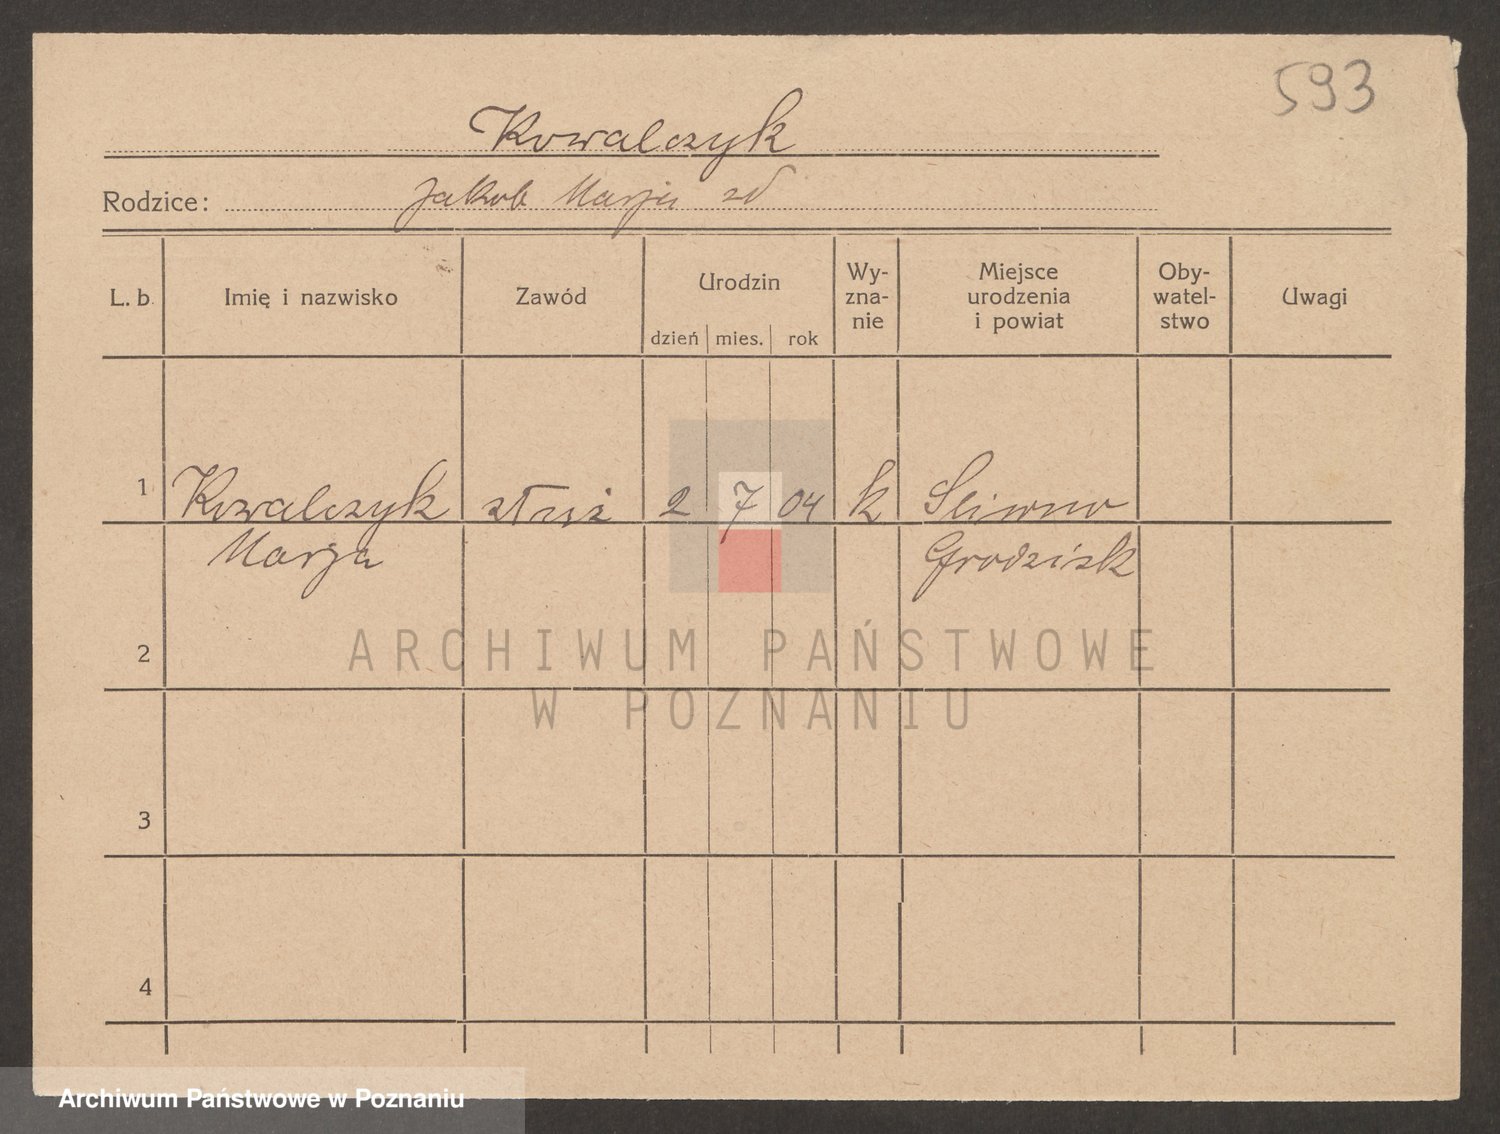 593
Kowalczyk
Rodzice: Jakob Marja
L. b. Imię i nazwisko Zawód Urodzin Wy-
zna-
nie Miejsce
urodzenia
i powiat Oby-
watel-
stwo Uwagi
dzień mies. rok
1 Kowalczyk służ 2 7 04 k Sliwno
Marja Grodzisk
2
ARCHIWUM PAŃSTWOWE
W POZNANIU
3
4
Archiwum Państwowe w Poznaniu